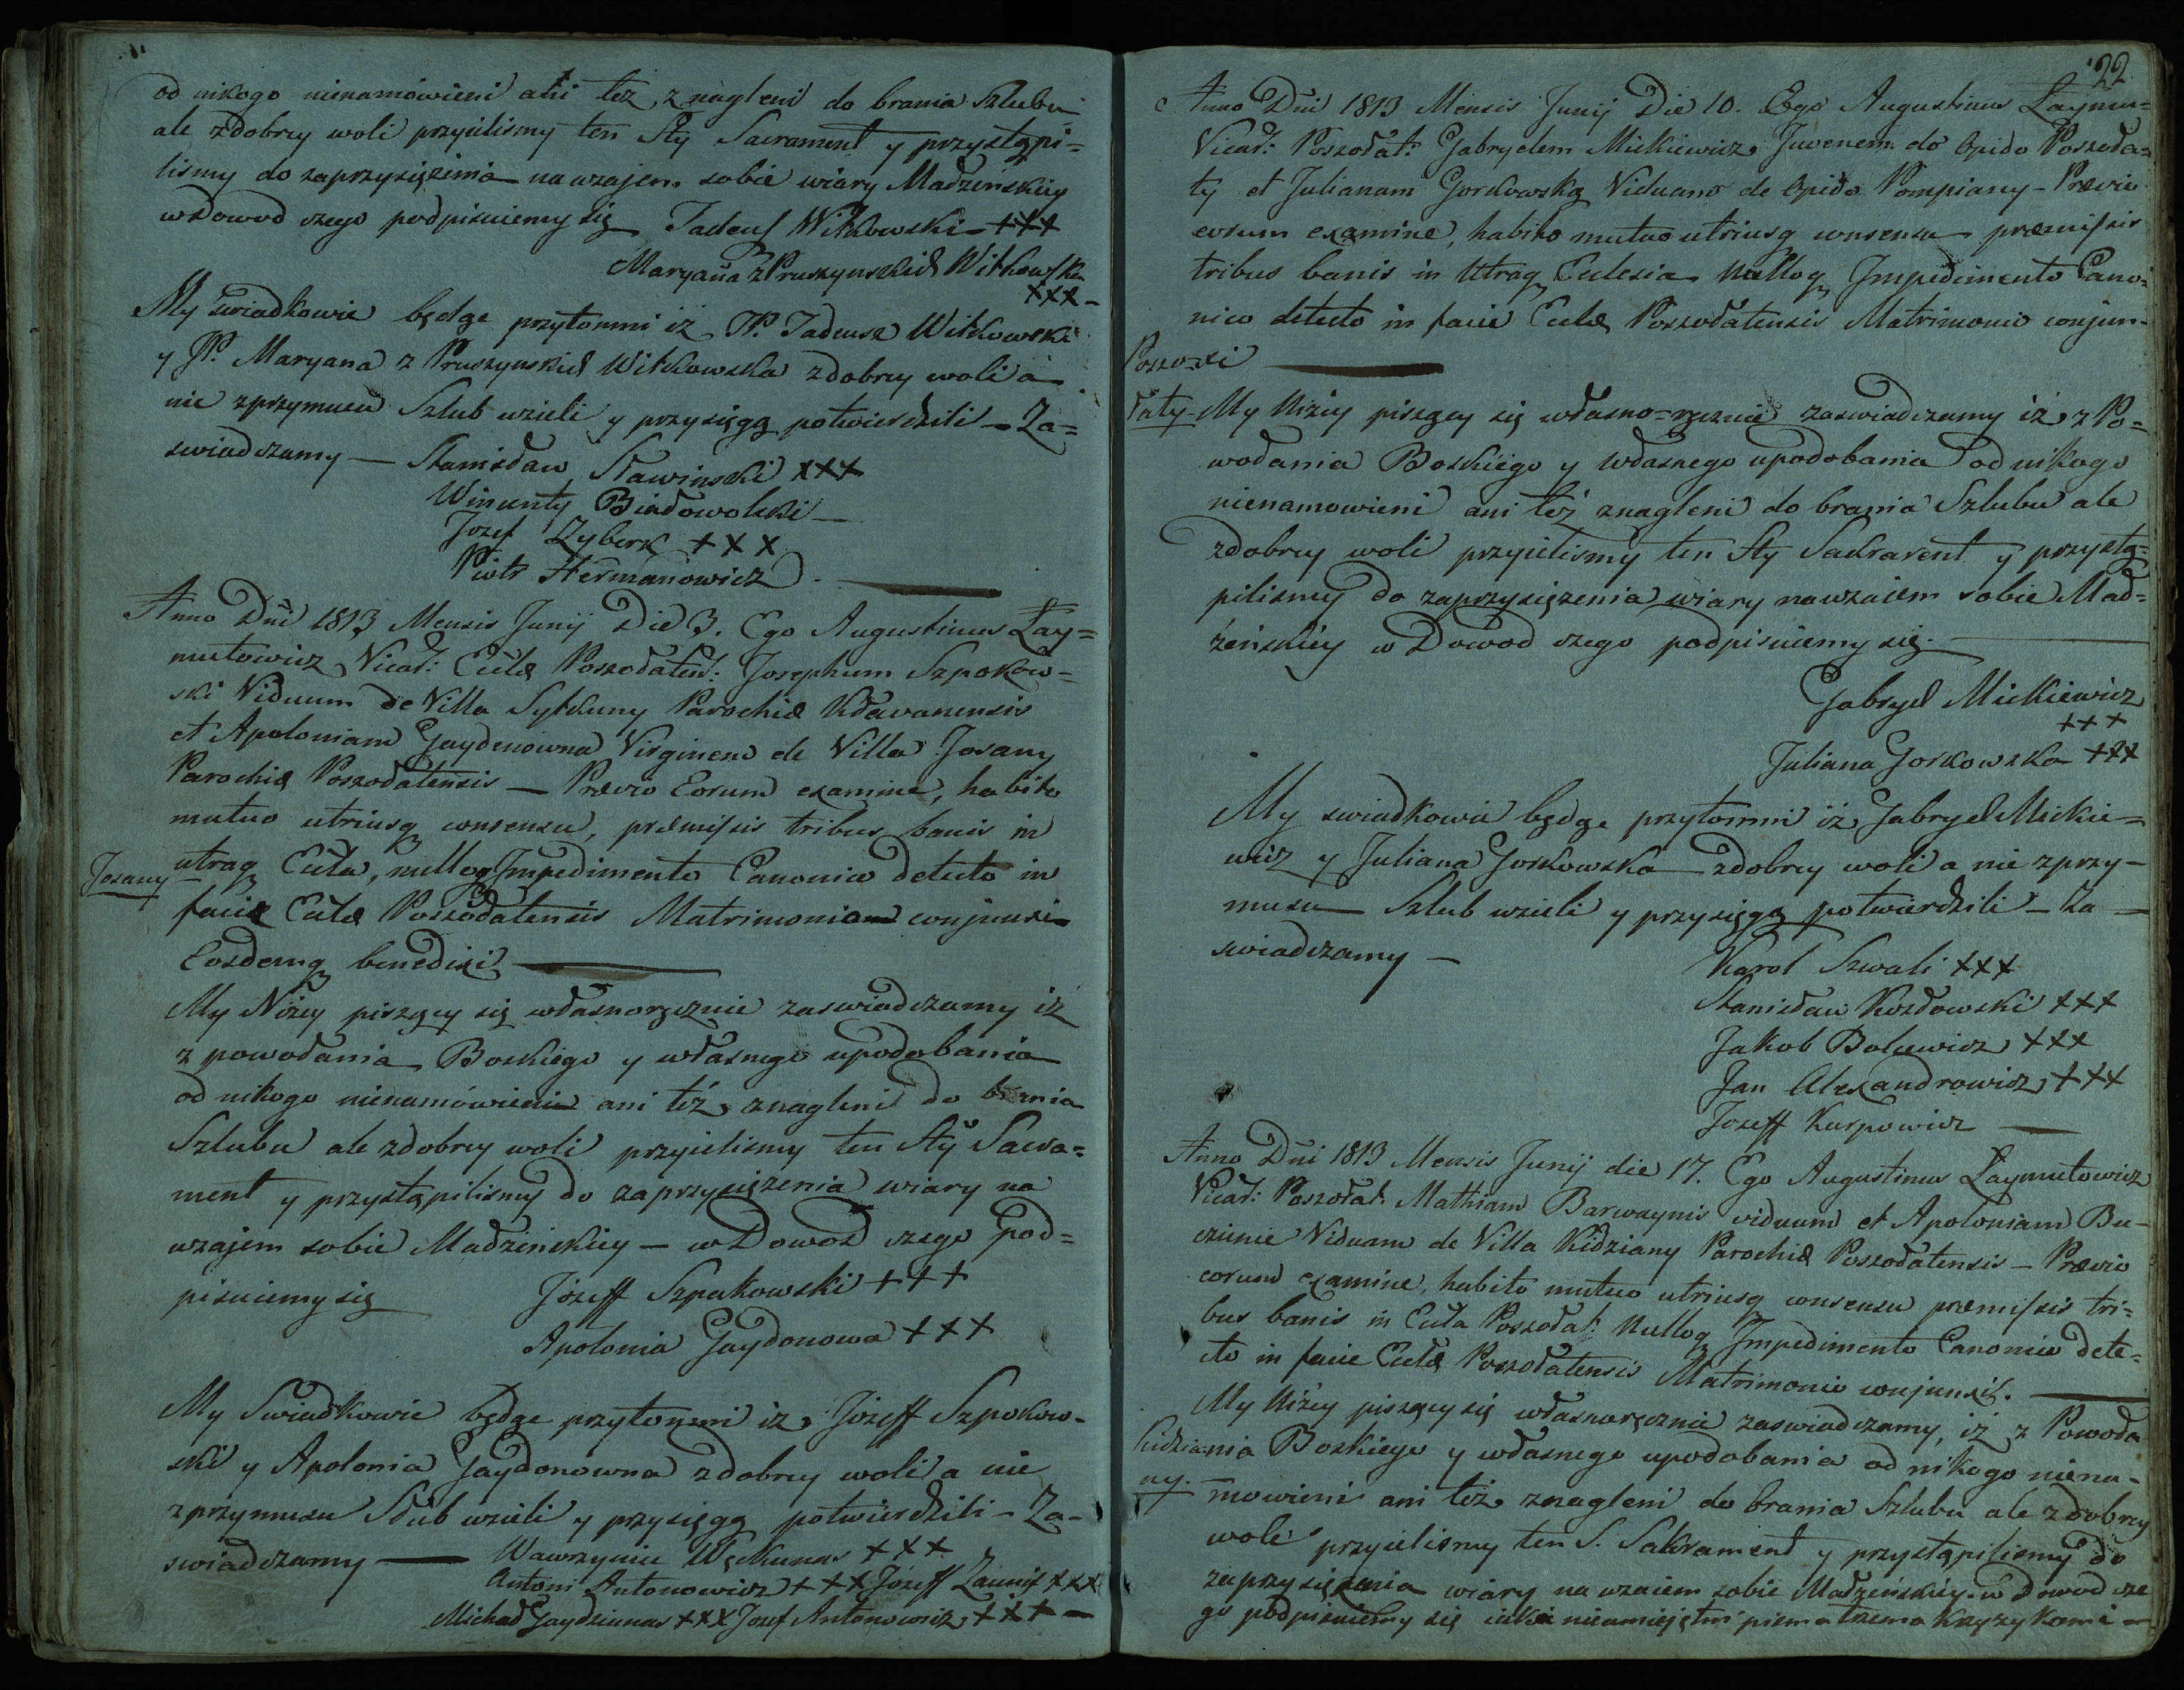 od nikogo nienamówieni ani też znagleni do brania Szlubu
ale zdobrey woli przyieliśmy ten Sty Sacrament y przystąpi=
liśmy do zaprzysięzenia nawzajem sobie wiary Małżeńskiey
wdowod czego podpisuiemy się Tadeusz Witkowski +++
Maryana z Pruszynskich Witkowska
+++
My swiadkowie będąc przytomni iż JP. Tadeusz Witkowski
y JP. Maryana z Pruszynskich Witkowska zdobrey woli a
nie zprzymusu Szlub wzieli y przysięgą potwierdzili – Za=
swiadczamy — Stanisław Sławinski +++
Wincenty Białowolski
Jozef Zyberk +++
Piotr Hermanowicz
Anno Dni 1813 Mensis Junij Die 3. Ego Augustinus Łay=
mutowicz Vicar: Eccla Poszołaten: Josephum Szpokow=
ski Viduum de Villa Sytkuny Parochiæ Kławanensis
et Apoloniam Gaydenowna Virginem de Villa Josany
Parochiæ Poszołatensis — Prævio Eorum examine, habito
mutuo utriusq consensu, præmissis tribus banis in
Josany
utraq Eccla, nulloq Impedimento Canonico detecto in
facie Ecclæ Poszołatensis Matrimonium conjunxi
Eosdemq benedixi —
My Niżey piszący się własnoręcznie zaswiadczamy iż
z powołania Boskiego y własnego upodobania
od nikogo nienamówieni ani też znagleni do brania
Szlubu ale zdobrey woli przyieliśmy ten Sty Sacra=
ment y przystąpiliśmy do zaprzysięzenia wiary na
wzajem sobie Małżeńskiey — wDowod czego pod=
pisuiemy się Józeff Szpakowski +++
Apolonia Gaydonowa +++
My Swiadkowie będąc przytomni iż Józeff Szpokow-
ski y Apolonia Gaydonowna zdobrey woli a nie
zprzymusu Slub wzieli y przysięgą potwierdzili – Za-
swiadczamy — Wawrzyniec Wękunas +++
Antoni Antonowicz +++ Józeff Zaunis +++
Michał Gaydziunas +++ Jozef Antonowicz +++ —
22
Anno Dni 1813 Mensis Junij Die 10. Ego Augustinus Łaymu=
Vicar: Poszołat: Gabryelem Mickiewicz Juvenem de Opido Poszoła=
ty et Julianam Gorkowską Viduam de Opido Pompiany – Prævio
eorum examine, habito mutuo utriusq consensu præmissis
tribus banis in Utraq Eclesia Nulloq Impedimento Cano=
nico detecto in facie Ecclæ Poszołatensis Matrimonio conjun-
Poszo=
xi —
łaty
My Niżey piszący się własno=ręcznie zaswiadczamy iż z Po=
wołania Boskiego y własnego upodobania od nikogo
nienamowieni ani też znagleni do brania Szlubu ale
zdobrey woli przyieliśmy ten Sty Sakrarent y przystą=
piliśmy do zaprzysięzenia wiary nawzaiem sobie Mał=
żeńskiey w Dowod czego podpisuiemy się. —
Gabryel Mickiewicz
+++
Juliana Gorkowska +++
My swiadkowie będąc przytomni iż Gabryel Mickie=
wicz y Juliana Gorkowska zdobrey woli a nie zprzy-
musu Szlub wzieli y przysięgą potwierdzili – Za=
swiadczamy –
Karol Szwali +++
Stanisław Kozłowski +++
Jakob Bolcewicz +++
Jan Alexandrowicz +++
Jozeff Karpowicz —
Anno Dni 1813 Mensis Junij die 17. Ego Augustinus Łaymutowicz
Vicar: Poszołat: Mathiam Barwaynis viduum et Apoloniam Bu-
czienie Viduam de Villa Kidziany Parochiæ Poszołatensis – Prævio
eorum examine, habito mutuo utriusq consensu præmissis tri=
bus banis in Eccla Poszołat: Nulloq Impedimento Canonico dete=
cto in facie Ecclæ Poszołatensis Matrimonio conjunxit. —
My Niżey piszący się własnoręcznie zaswiadczamy, iż z Powoła
Kidzia
nia Boskiego y własnego upodobania od nikogo niena-
ny.
mowieni ani też znagleni do brania Szlubu ale zdobrey
woli przyieliśmy ten S. Sakrament y przystąpiliśmy do
zaprzysięzenia wiary nawzaiem sobie Małżeńskiey. w dowod cze
go podpisuiemy się iako nieumiejętni pisma trzema krzyżykami —